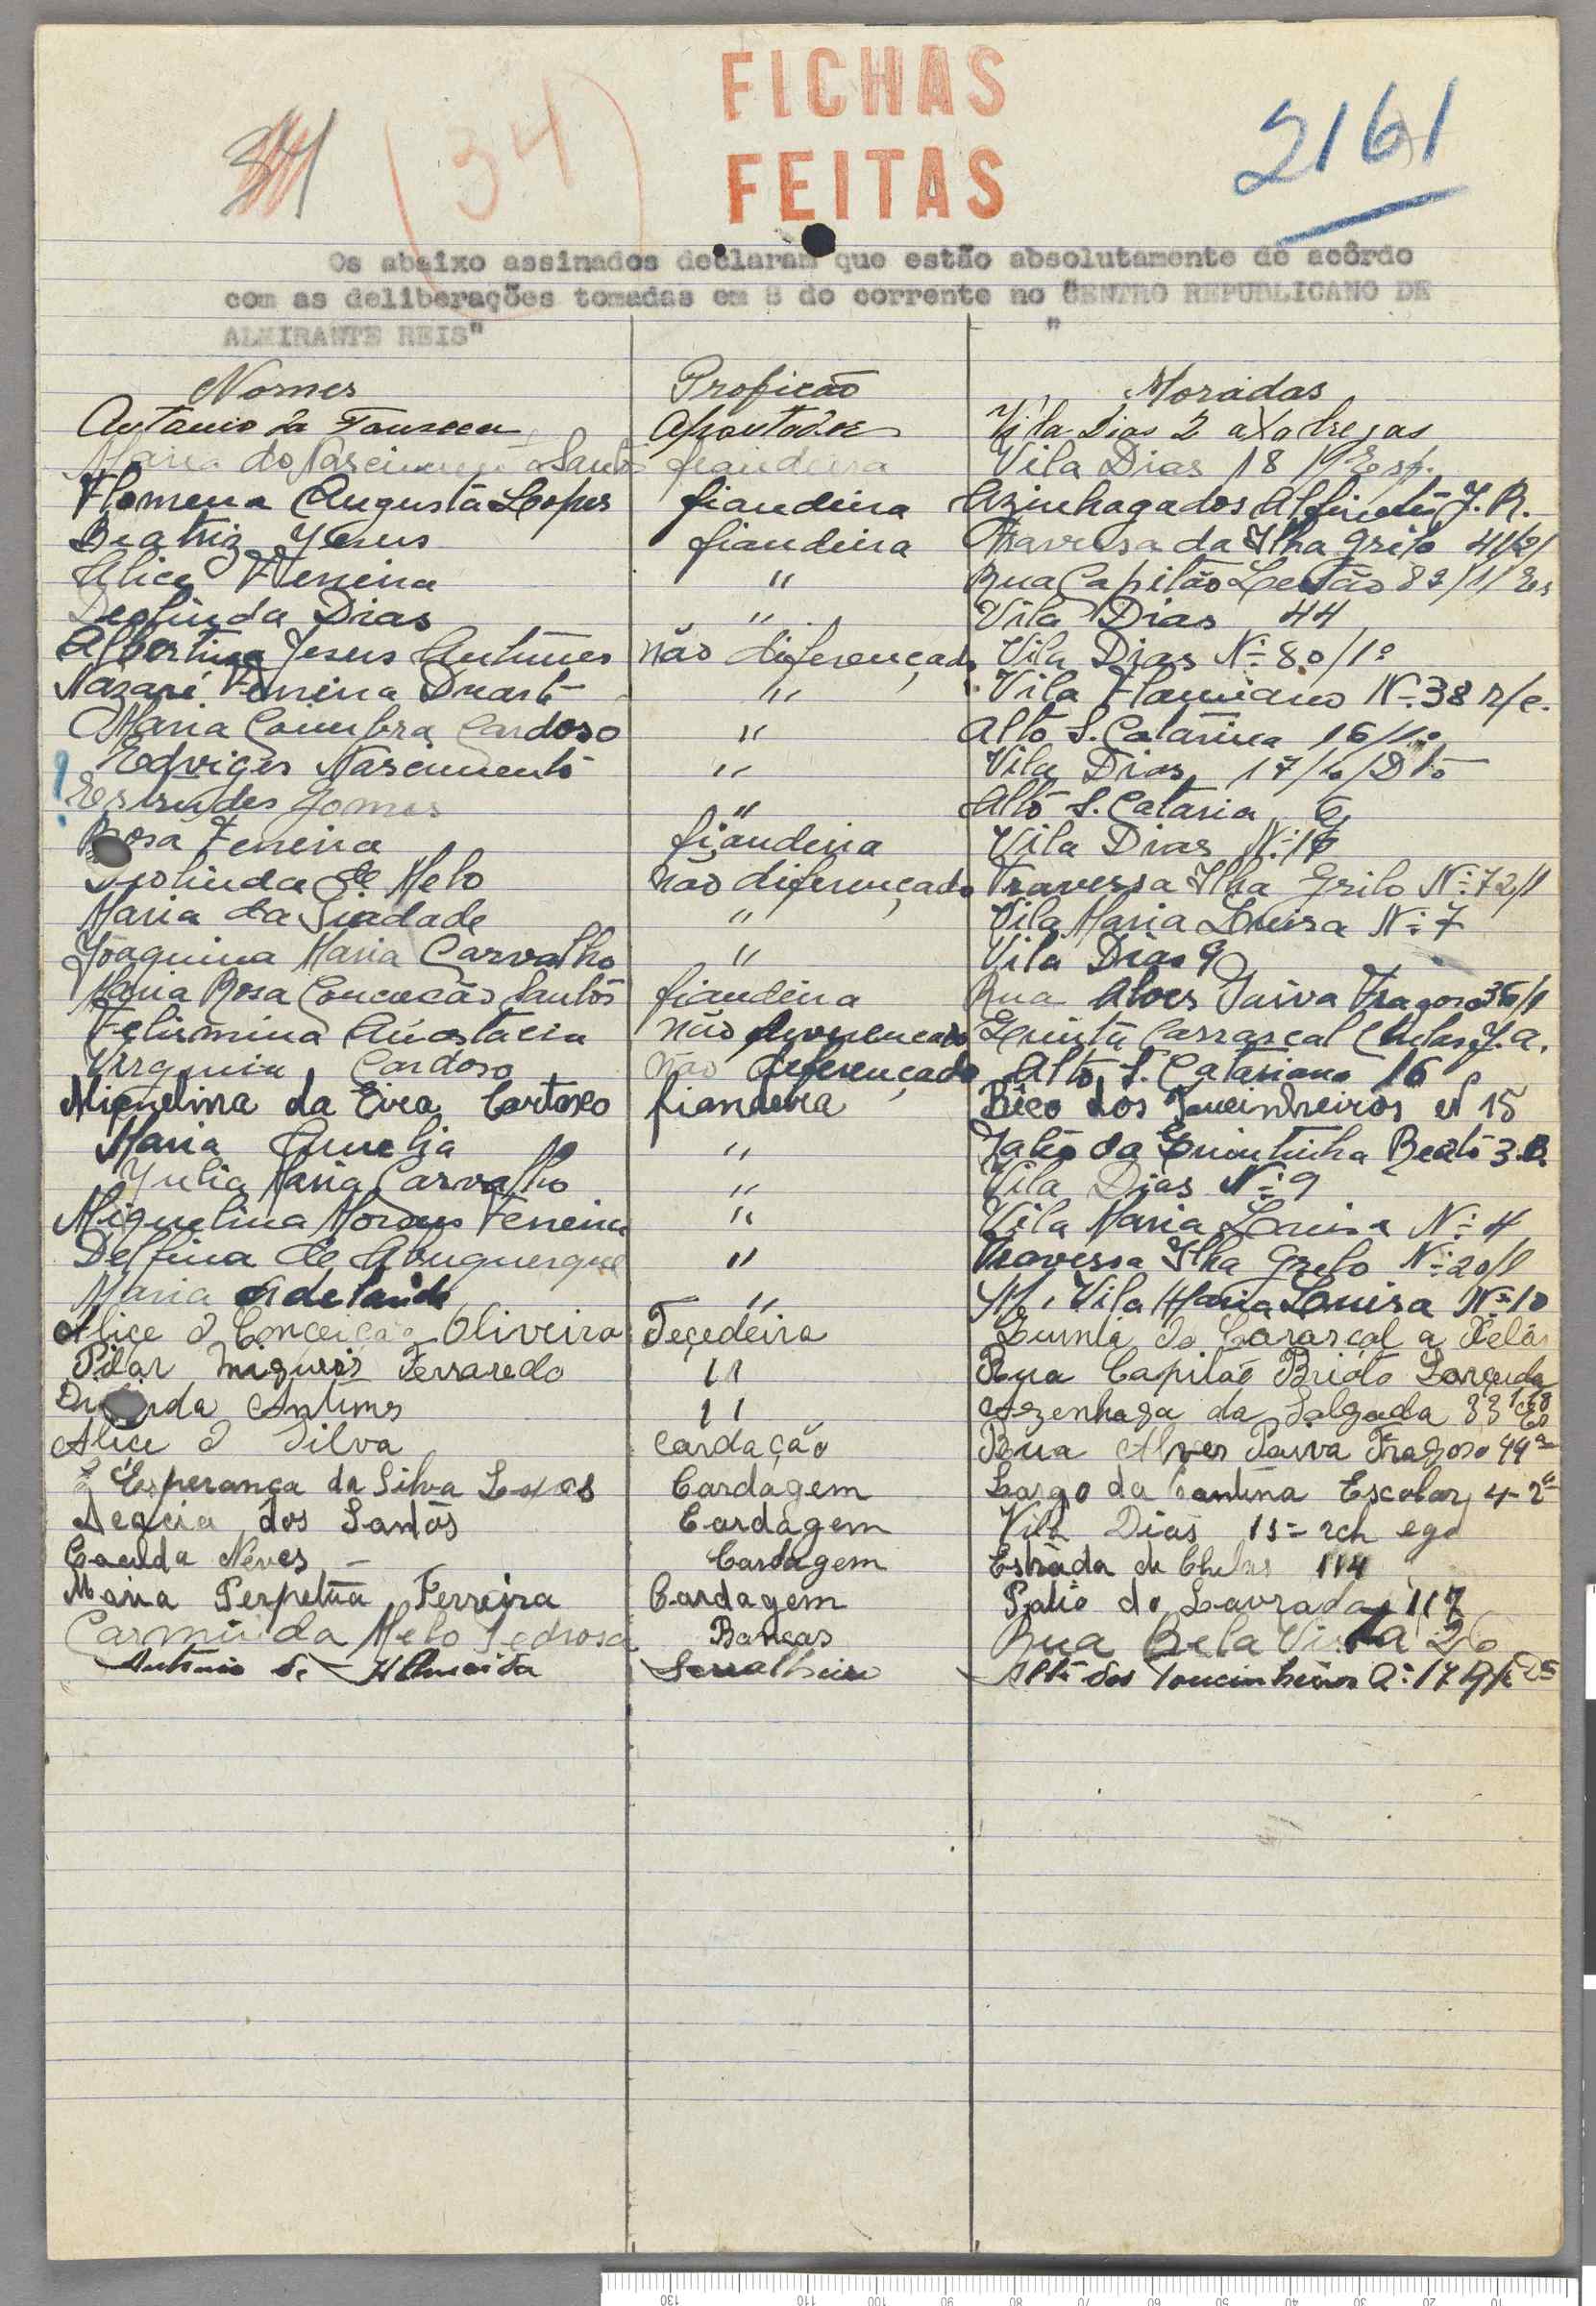 FICHAS
FEITAS
34
(34)
2161
Os abaixo assinados declaram que estão absolutamente de acôrdo
com as deliberações tomadas em 8 do corrente no "CENTRO REPUBLICANO DE
ALMIRANTE REIS"
Nomes Proficão Moradas
Antonio da Fonseca Apontador Vila Dias 2 a Xabregas
Maria do Nascimento Santos fiandeira Vila Dias 18 1º Esq.
Flomena Augusta Lopes fiandeira Azinhaga dos Alfinetes J. R.
Beatriz Jesus fiandeira Travessa da Ilha Grilo 41/2/
Alice Ferreira " Rua Capitão Leitão 82/1/ Es
Deolinda Dias " Vila Dias 44
Albertina Jesus Antunes não diferençado Vila Dias Nº 80/1º
Nazaré Ferreira Duarte " Vila Flamiano Nº 38 r/c.
Maria Coimbra Cardoso " Alto S. Catarina 16/1º
Edviges Nascimento " Vila Dias 17/1º/Dto
Gomes " Alto S. Cataria 6
Rosa Ferreira fiandeira Vila Dias Nº 16
Deolinda de Melo não diferençado Travessa Ilha Grilo Nº 72/1
Maria da Piadade " Vila Maria Luisa Nº 7
Joaquina Maria Carvalho " Vila Dias 9
Maria Rosa Conceicão Santos fiandeira Rua Alves Paiva Fragoso 36/1
Felismina Anastacia não diferencado Quinta Carrascal Chelas J. A.
Virginia Cardoso não deferençado Alto S. Catariana 16
Miquelina da Eira Cartaxo fiandeira Beco dos Toucinheiros nº 15
Maria Amelia " Patio da Quintinha Beato 3. B.
Julia Maria Carvalho " Vila Dias Nº 9
Miquelina Moraes Ferreira " Vila Maria Louisa Nº 4
Delfina de Abuquerque " Travessa Ilha Grelo Nº 20/1
Maria Adelaide " Vila Maria Louisa Nº 10
Alice d Conceição Oliveira Teçedeira Quinta do Cararcal a Xelas
Pilar Migueis Ferraredo " Rua Capitão
Antunes " Azenhaga da Salgada 33
Alice d Silva Cardação Rua Alves Paiva Fragoso 44
Esperança da Silva Cardagem Largo da Cantina Escolar 4-2º
dos Santos Cardagem Vila Dias 15 = rch
Neves - Cardagem Estrada de Chelas 114
Maria Perpetua Ferreira Cardagem Patio do Lavrado 117
Carminda Melo Pedrosa Bancas Rua Bela Vista 26
Antonio de Almeida Serralheiro dos Toucinheiros 17